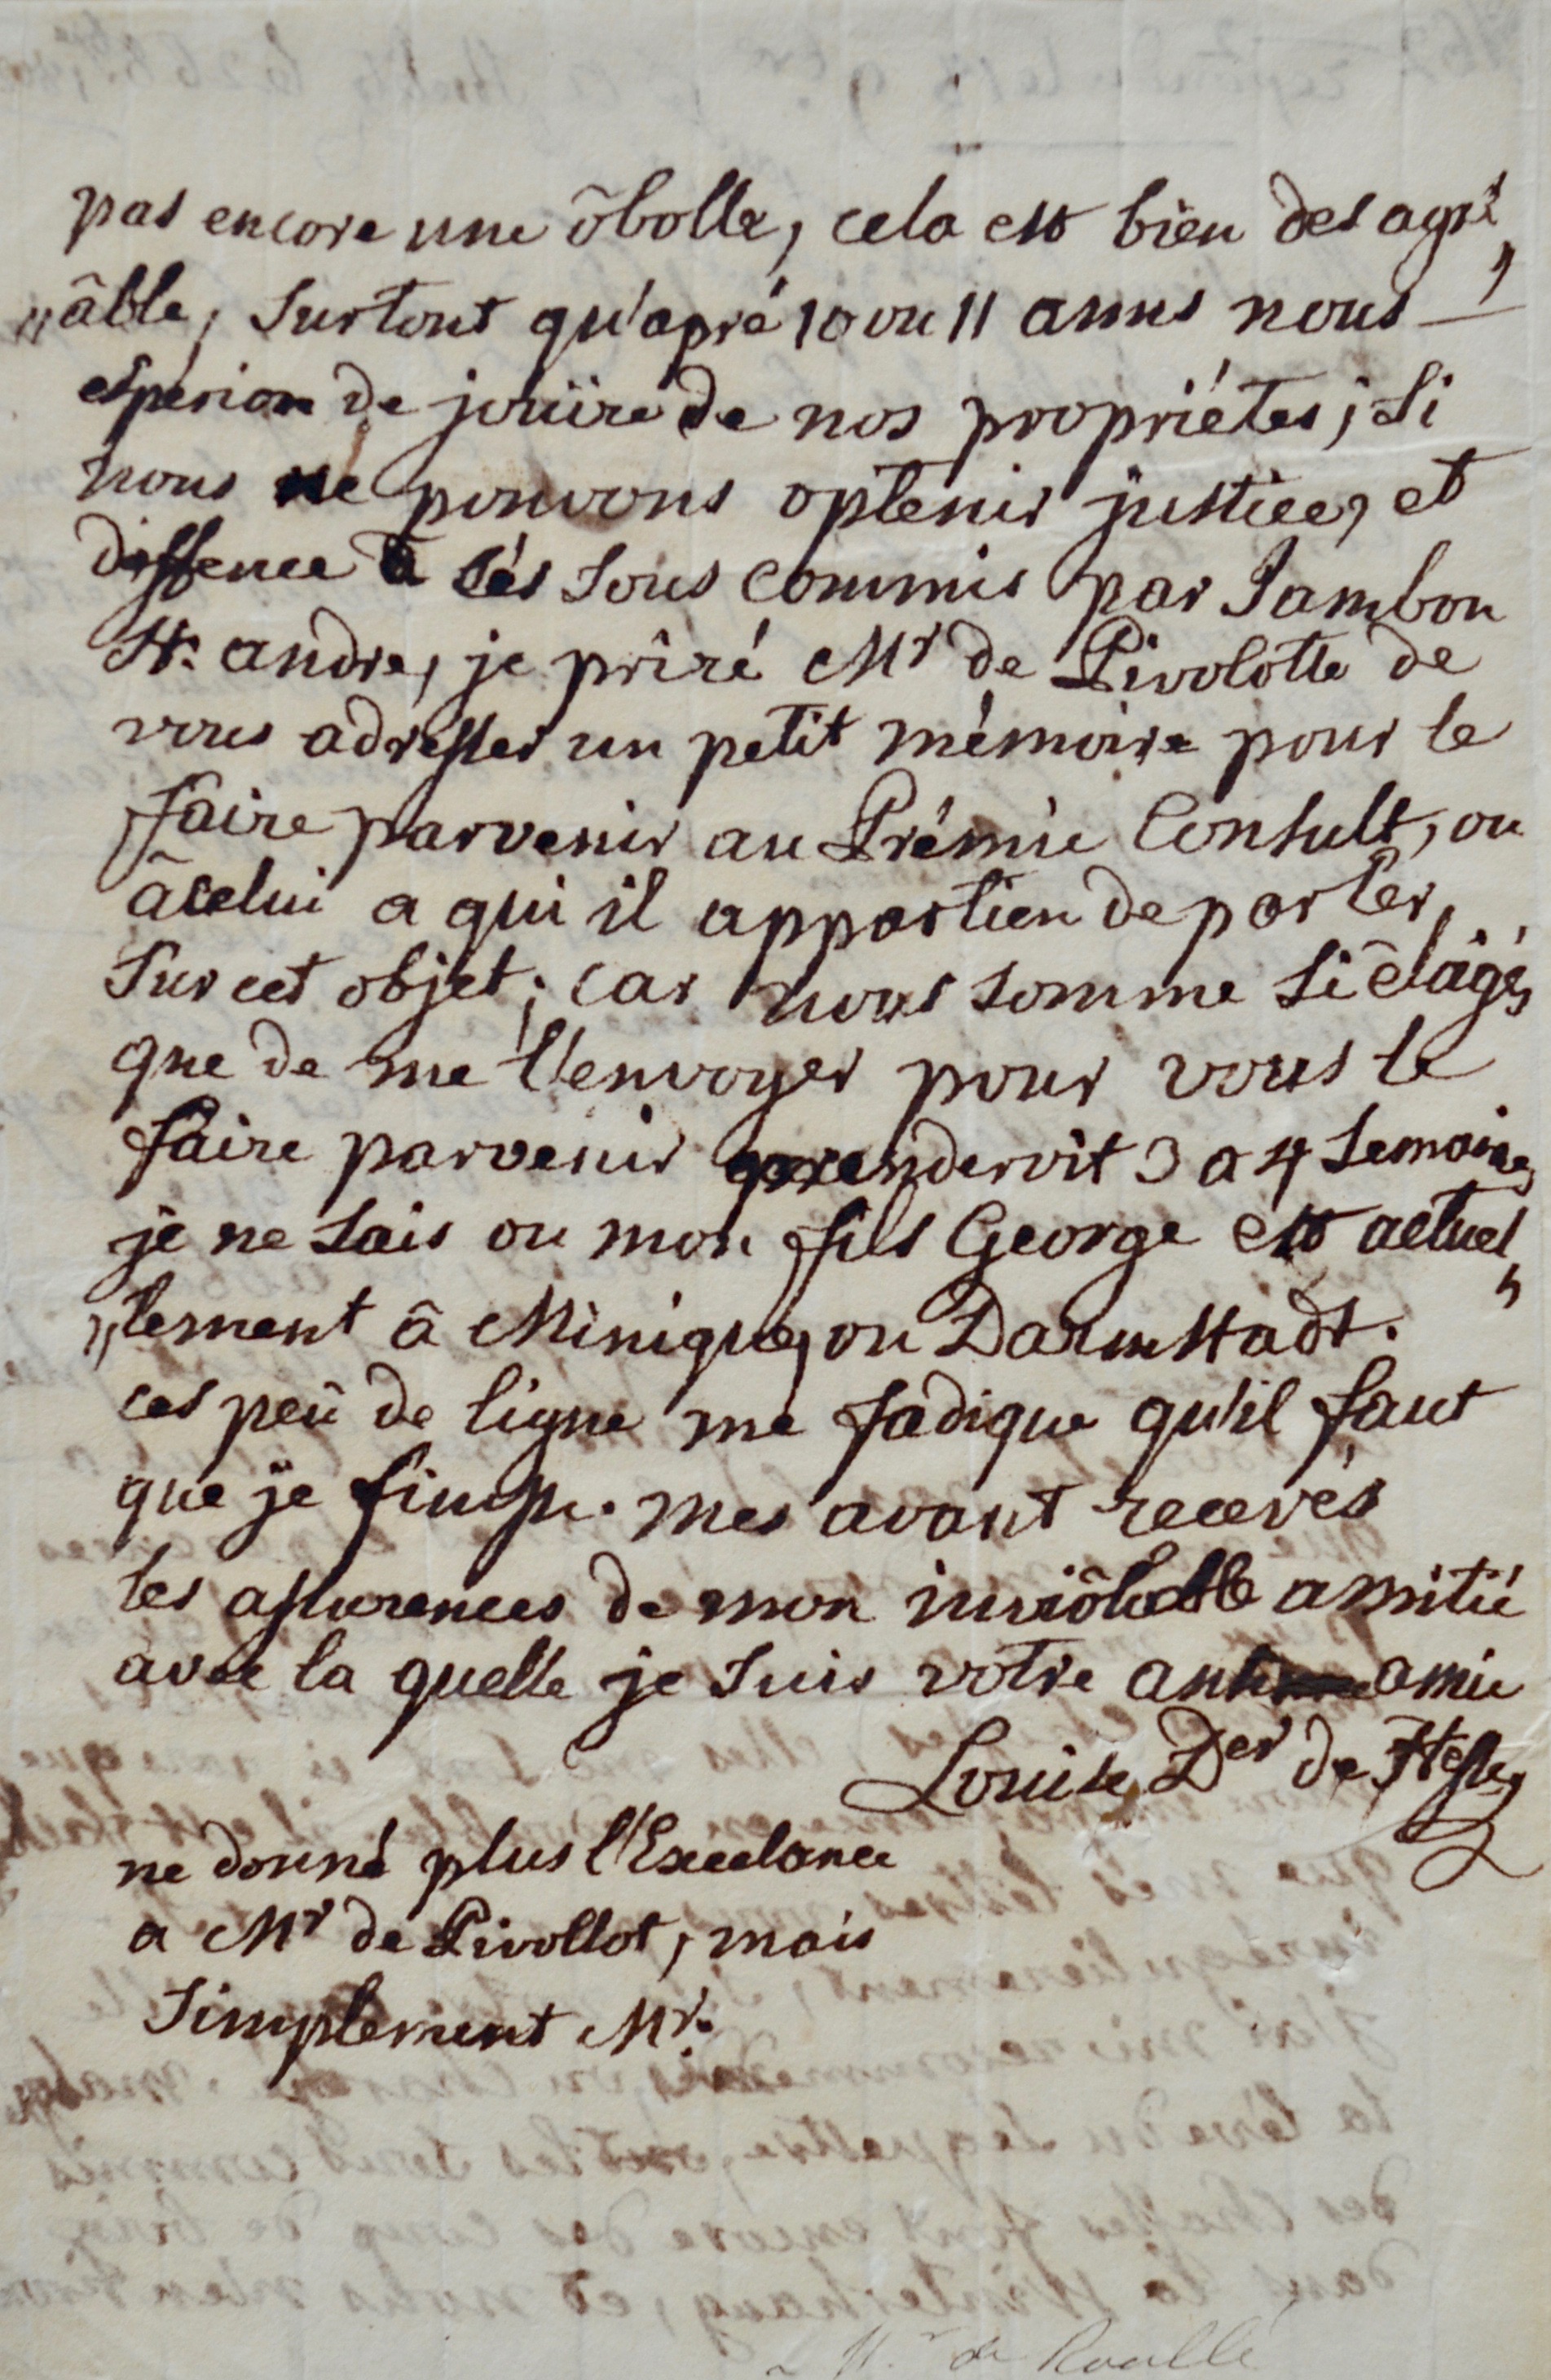 pas encore une ôbolle, cela est bien des agré„
„âble, surtout qu'apré 10 ou 11 annés nous —
espérion de joüire de nos propriétes; si
nous ne pouvons optenir justice, et
deffence à sés sous commis par Jambon
St. andre, je priré Mr de Pivolotte de
vous adresser un petit mémoire pour le
faire parvenir au Prémie Consult, ou
âcelui a qui il appartien de parler
sur cet objet; car nous somme si êlàgés
que de me l'envoyer pour vous le
faire parvenir prenderoit 3 a 4 semaines
je ne sais ou mon fils George est actuel„
„lement â Minique, ou Darmstadt.
ces peû de ligne me fadique qu'il faut
que je finise. mes avant recevés
les assurences de mon inviôlable amitié
avec la quelle je suis votre amie
Louise Der de Hesse
ne donné plus l'Excelance
a Mr de Pivollot, mais
simplement Mr.
Mr de